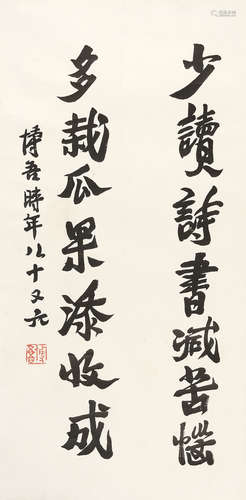 少讀詩書減苦惱
多栽瓜果添收成
博吾時年八十又六